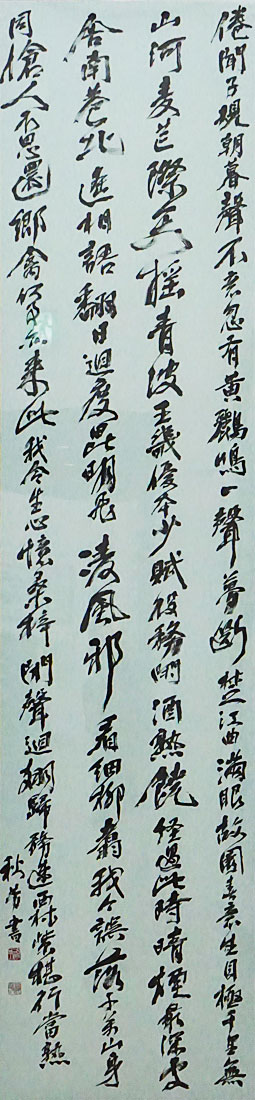 倦聞子規朝暮聲不意忽有黃鸝鳴一聲夢斷楚江曲滿眼故園春意生目極千里無
山河麥芒際天搖青波王畿優本少賦役務閑酒熟饒經過此時晴煙最深處
舍南巷北遙相語翻日迥度昆明飛凌風邪看細柳翥我今誤落千萬山身
同傖人不思還鄉禽何事亦來此我令生心憶桑梓閉聲迴翅歸務速西林紫椹行當熟
秋書